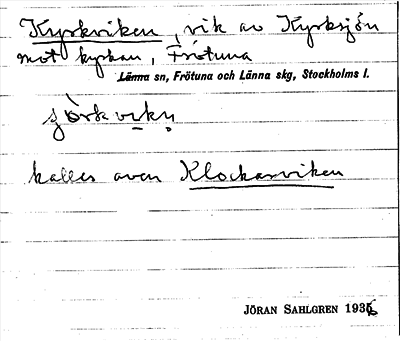 Kyrkviken, vik av Kyrksjön
mot kyrkan, Frötuna
Länna sn, Frötuna och Länna skg, Stockholms l.
kallas även Klockarviken
JÖRAN SAHLGREN 1936